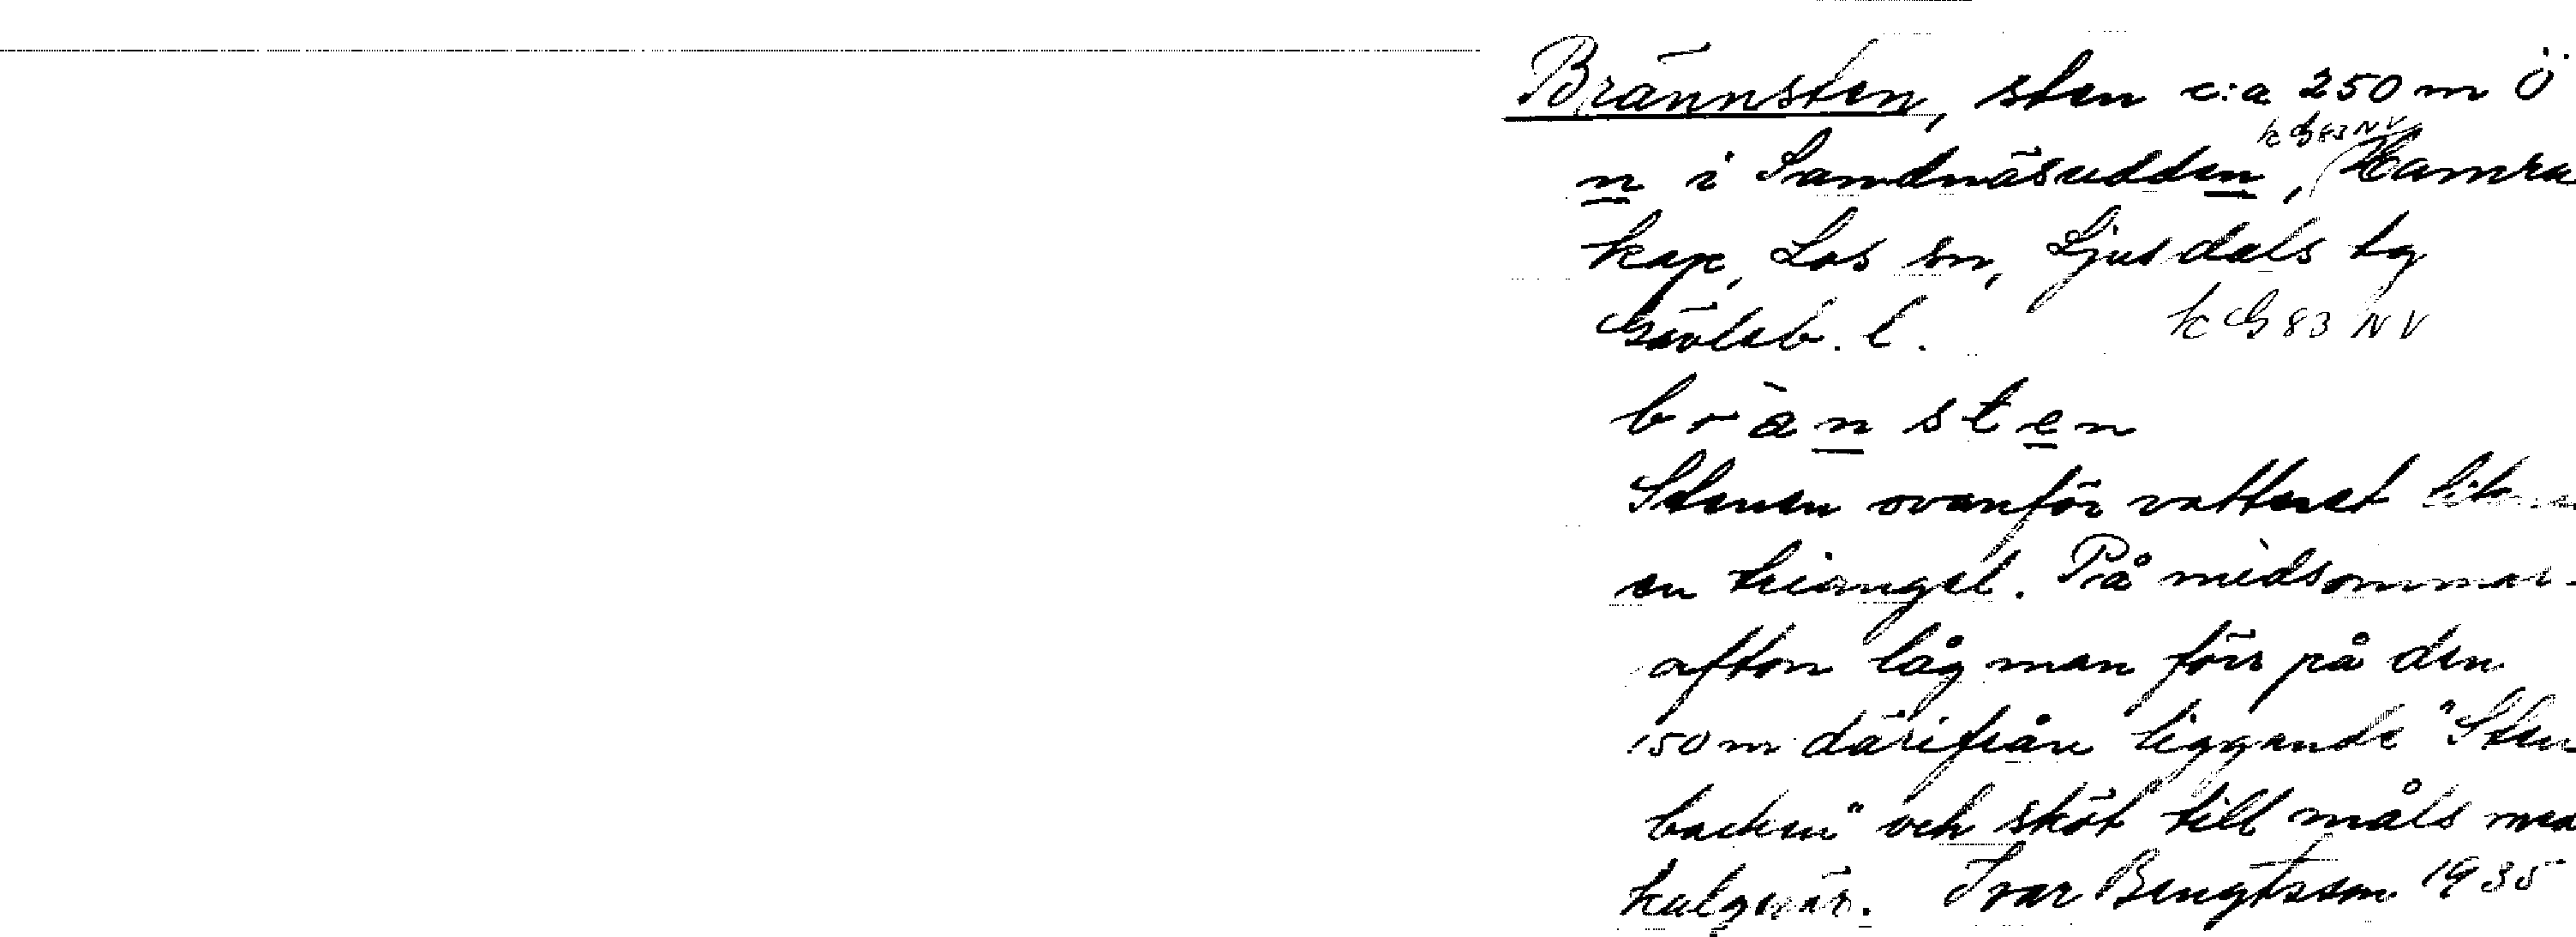 Brännsten, sten c:a 250 m Ö
k G 83 NV
n i Sandnäsudden, Hamra
kap, Los sn, Ljusdals tg
Gävleb. l. k G 83 NV
b r ä n s t e n
Stenen ovanför vattnet
en triangel. På midsommar-
afton låg man förr på den
150 m därifrån liggande "Sten
backen" och sköt till måls med
kulgevär. Ivar Bengtsson 1935